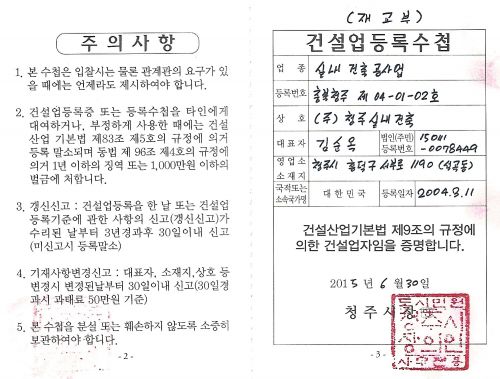 주 의 사 항
1. 본 수첩은 입찰시는 물론 관계관의 요구가 있
을 때에는 언제라도 제시하여야 합니다.
2. 건설업등록증 또는 등록수첩을 타인에게
대여하거나, 부정하게 사용한 때에는 건설
산업 기본법 제83조 제5호의 규정에 의거
등록 말소되며 동법 제 96조 제4호의 규정에
의거 1년 이하의 징역 또는 1,000만원 이하의
벌금에 처합니다.
3. 갱신신고 : 건설업등록을 한 날 또는 건설업
등록기준에 관한 사항의 신고(갱신신고)가
수리된 날부터 3년경과후 30일이내 신고
(미신고시 등록말소)
4. 기재사항변경신고 : 대표자, 소재지,상호 등
변경시 변경된날부터 30일이내 신고(30일경
과시 과태료 50만원 기준)
5. 본 수첩을 분실 또는 훼손하지 않도록 소중히
보관하여야 합니다.
- 2 -
(재교부)
건설업등록수첩
업 종 실내건축공사업
등록번호 충북청주 제 04-01-02호
상 호 (주) 청주실내건축
대표자 김순옥 법인(주민)등록번호 150111-0078449
영업소소재지 청주시 흥덕구 서부로 1190 (석곡동)
국적또는소속국가명 대 한 민 국 등록일자 2004.8.11
건설산업기본법 제9조의 규정에
의한 건설업자임을 증명합니다.
2015 년 6 월 30 일
청 주 시 장
- 3 -